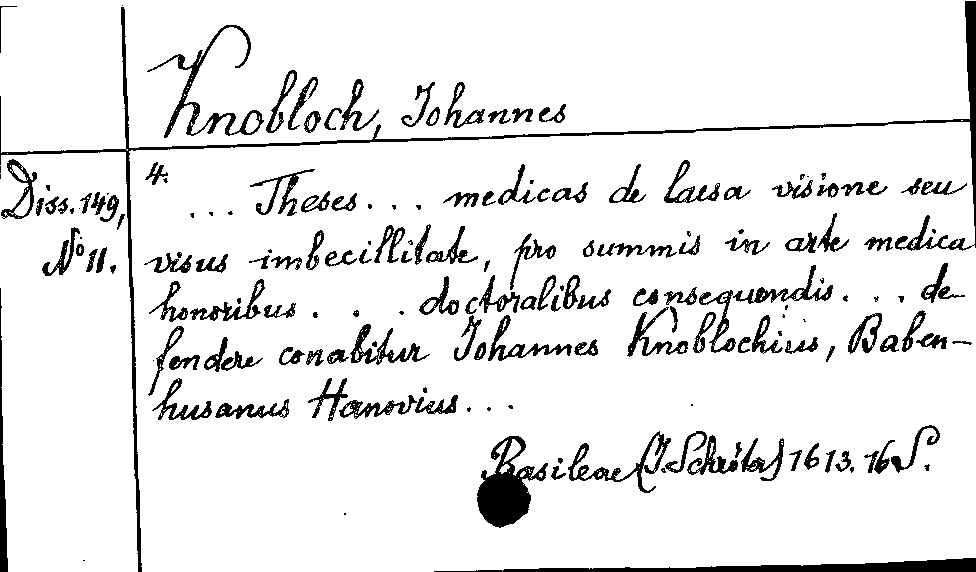 Knobloch, Johannes
Diss. 149,
No 11.
4.
... Theses ... medicas de laesa visione seu
visus imbecillitate, pro summis in arte medica
honoribus . . . doctoralibus consequendis . . . de-
fendere conabitur Johannes Knoblochius, Baben-
husanus Hanovius ...
Basileae (J. Schröter) 1613. 16 S.